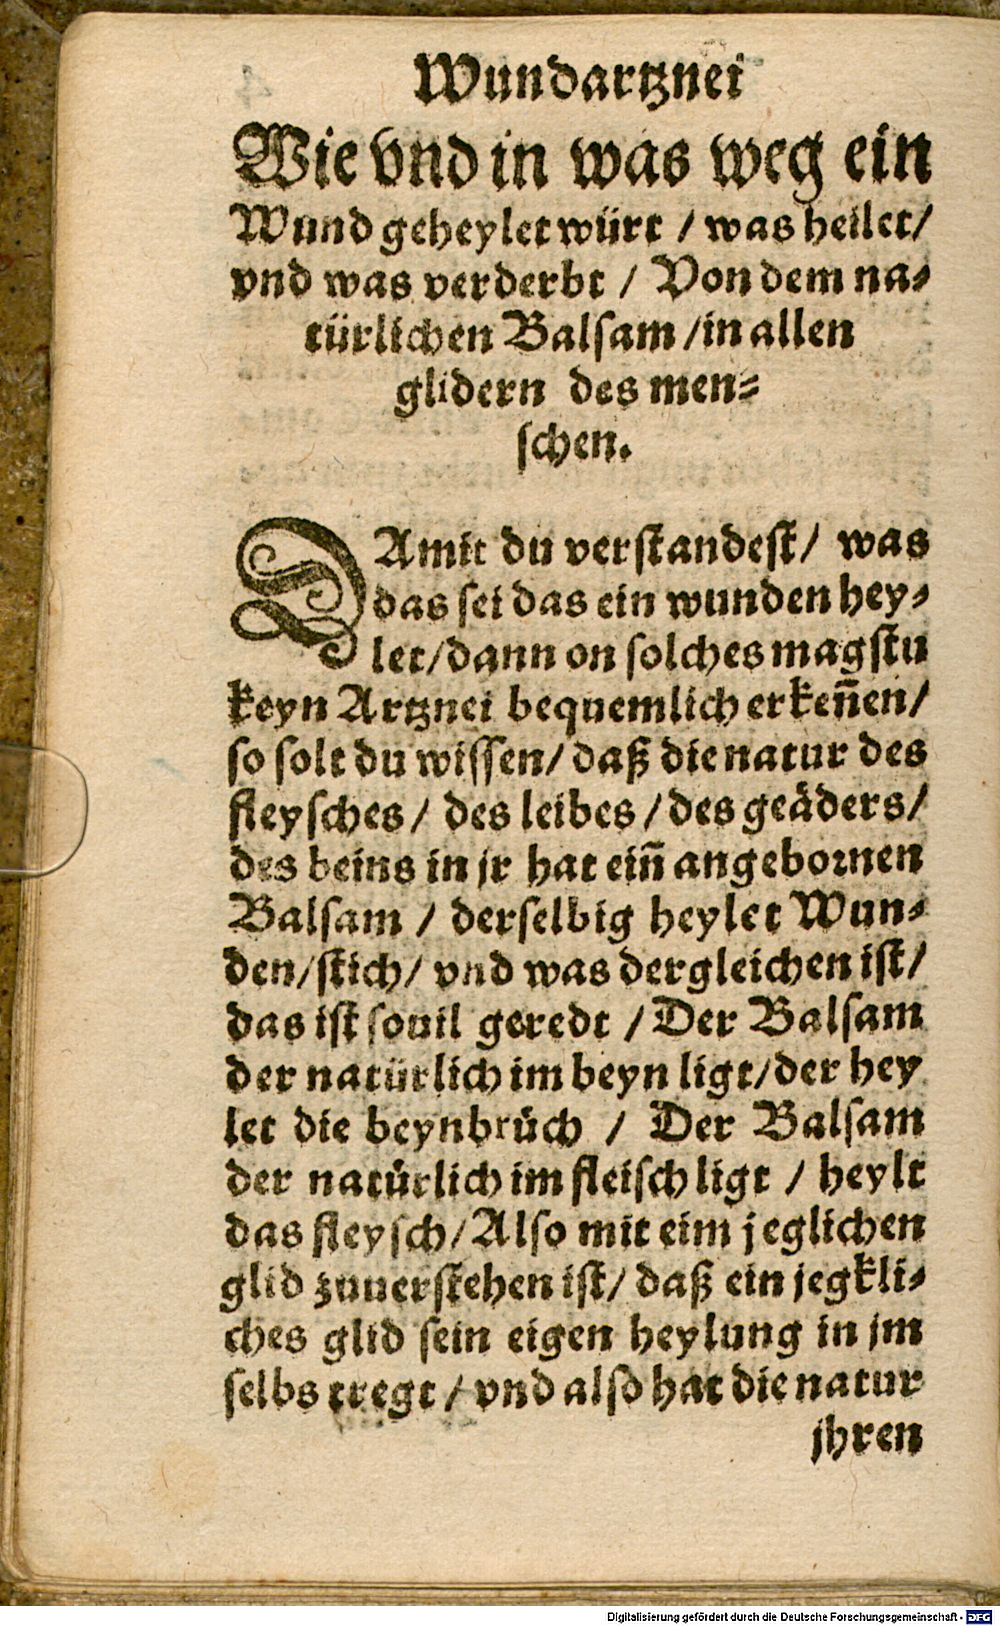 Wundartznei
Wie vnd in was weg ein
Wund geheylet würt / was heilet/
vnd was verderbt / Von dem na⸗
türlichen Balſam /in allen
glidern des men⸗
ſchen.
DAmit du verſtandeſt/ was
das ſei das ein wunden hey⸗
let/dann on ſolches magſtu
keyn Artznei bequemlich erkeñen/
ſo ſolt du wiſſen/ daß die natur des
fleyſches/ des leibes /des geäders/
des beins in jr hat eiñ angebornen
Balſam / derſelbig heylet Wun⸗
den/ſtich/ vnd was dergleichen iſt/
das iſt ſouil geredt /Der Balſam
der natürlich im beyn ligt/der hey
let die beynbrüch / Der Balſam
der natürlich im fleiſch ligt / heylt
das fleyſch/Alſo mit eim jeglichen
glid zuuerſtehen iſt/ daß ein jegkli⸗
ches glid ſein eigen heylung in jm
ſelbs tregt / vnd alſo hat die natur
jhren
Digitalisierung gefördert durch die Deutsche Forschungsgemeinschaft - DFG